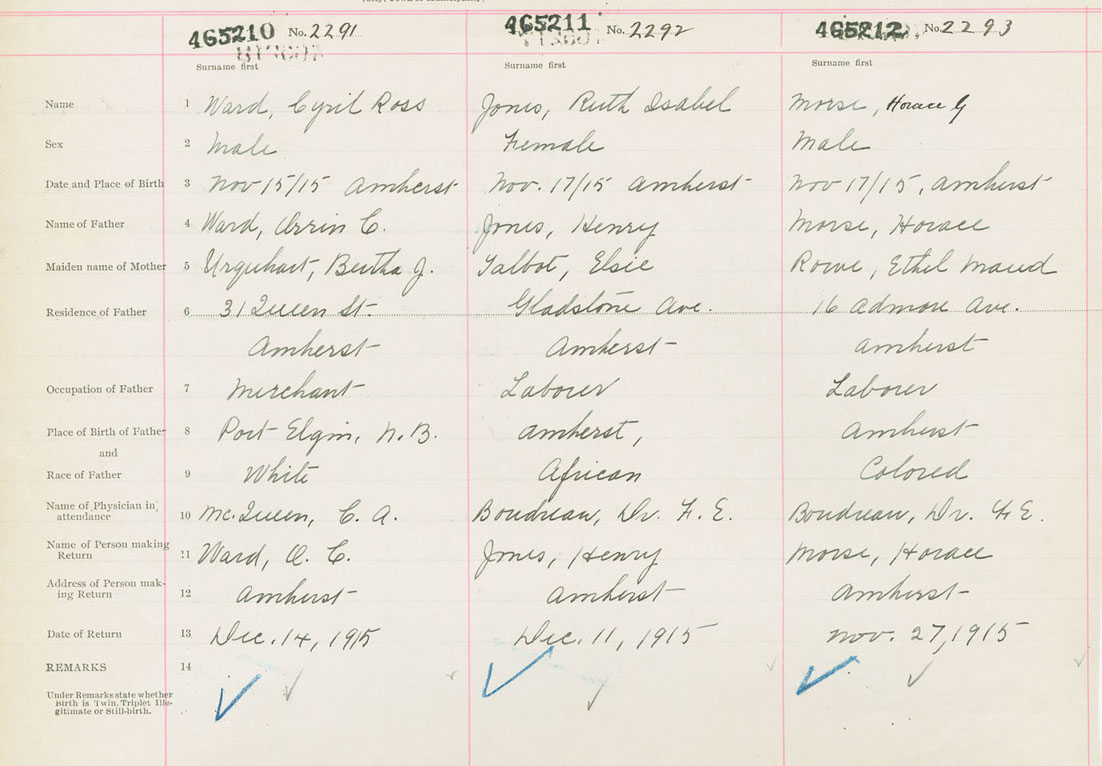 465210 No. 2291 465211 No. 2292 465212 No. 2293
Surname first Surname first Surname first
Name 1 Ward, Cyril Ross Jones, Ruth Isabel Morse, Horace G
Sex 2 Male Female Male
Date and Place of Birth 3 Nov 15/15 Amherst Nov. 17/15 Amherst Nov 17/15, Amherst
Name of Father 4 Ward, Orrin C. Jones, Henry Morse, Horace
Maiden name of Mother 5 Urquhart, Bertha J. Talbot, Elsie Rowe, Ethel Maud
Residence of Father 6 31 Queen St. Gladstone Ave. 16 Admore Ave.
Amherst Amherst Amherst
Occupation of Father 7 Merchant Laborer Laborer
Place of Birth of Father 8 Port Elgin, N.B. Amherst, Amherst
and
Race of Father 9 White African Colored
Name of Physician in
attendance 10 Mc.Queen, C. A. Boudreau, Dr. F. E. Boudreau, Dr. F E.
Name of Person making
Return 11 Ward, O. C. Jones, Henry Morse, Horace
Address of Person mak-
ing Return 12 Amherst Amherst Amherst
Date of Return 13 Dec. 14, 1915 Dec. 11, 1915 Nov. 27, 1915
REMARKS 14
Under Remarks state whether
Birth is Twin, Triplet Ille-
gitimate or Still-birth.